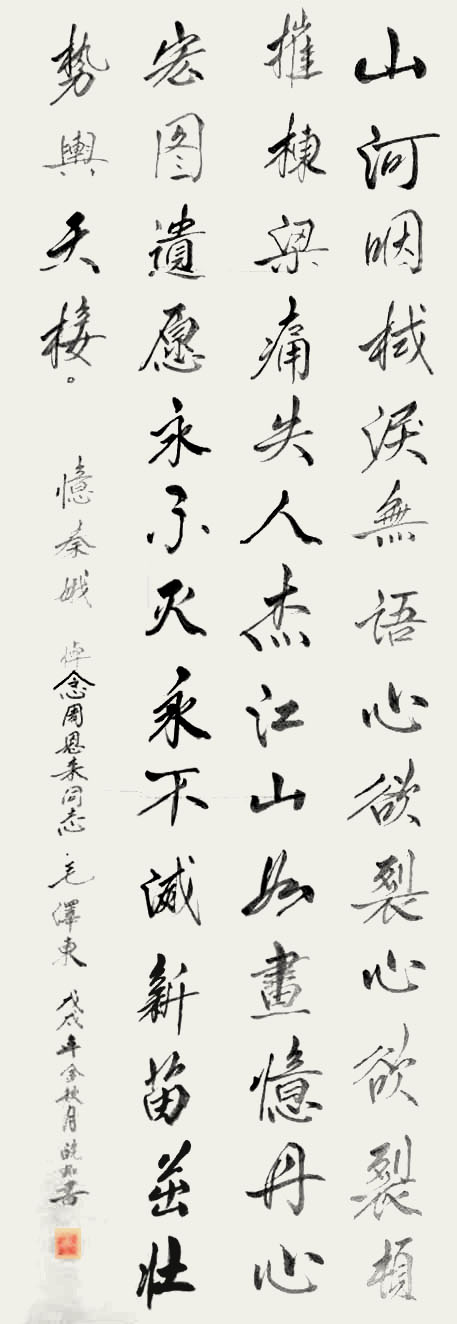 山河咽棫淚無語心欲裂心欲裂頓
摧棟梁痛失人杰江山如畫憶丹心
宏图遺愿永不灭永不滅新苗茁壮
勢輿天接。
憶秦娥 悼念周恩来同志 毛澤東 戊戌年金秋月 書